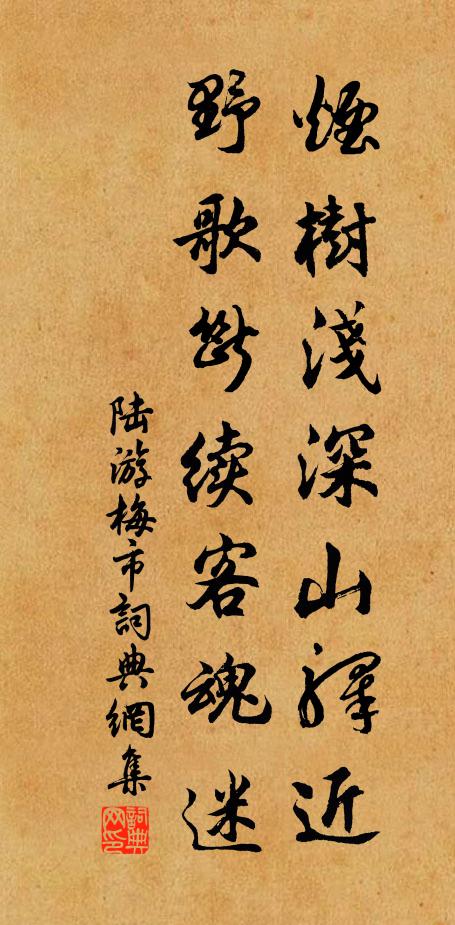 煙樹淺深山驛近
野歌斷续客魂迷
陆游梅市詞典網集
詞典網印